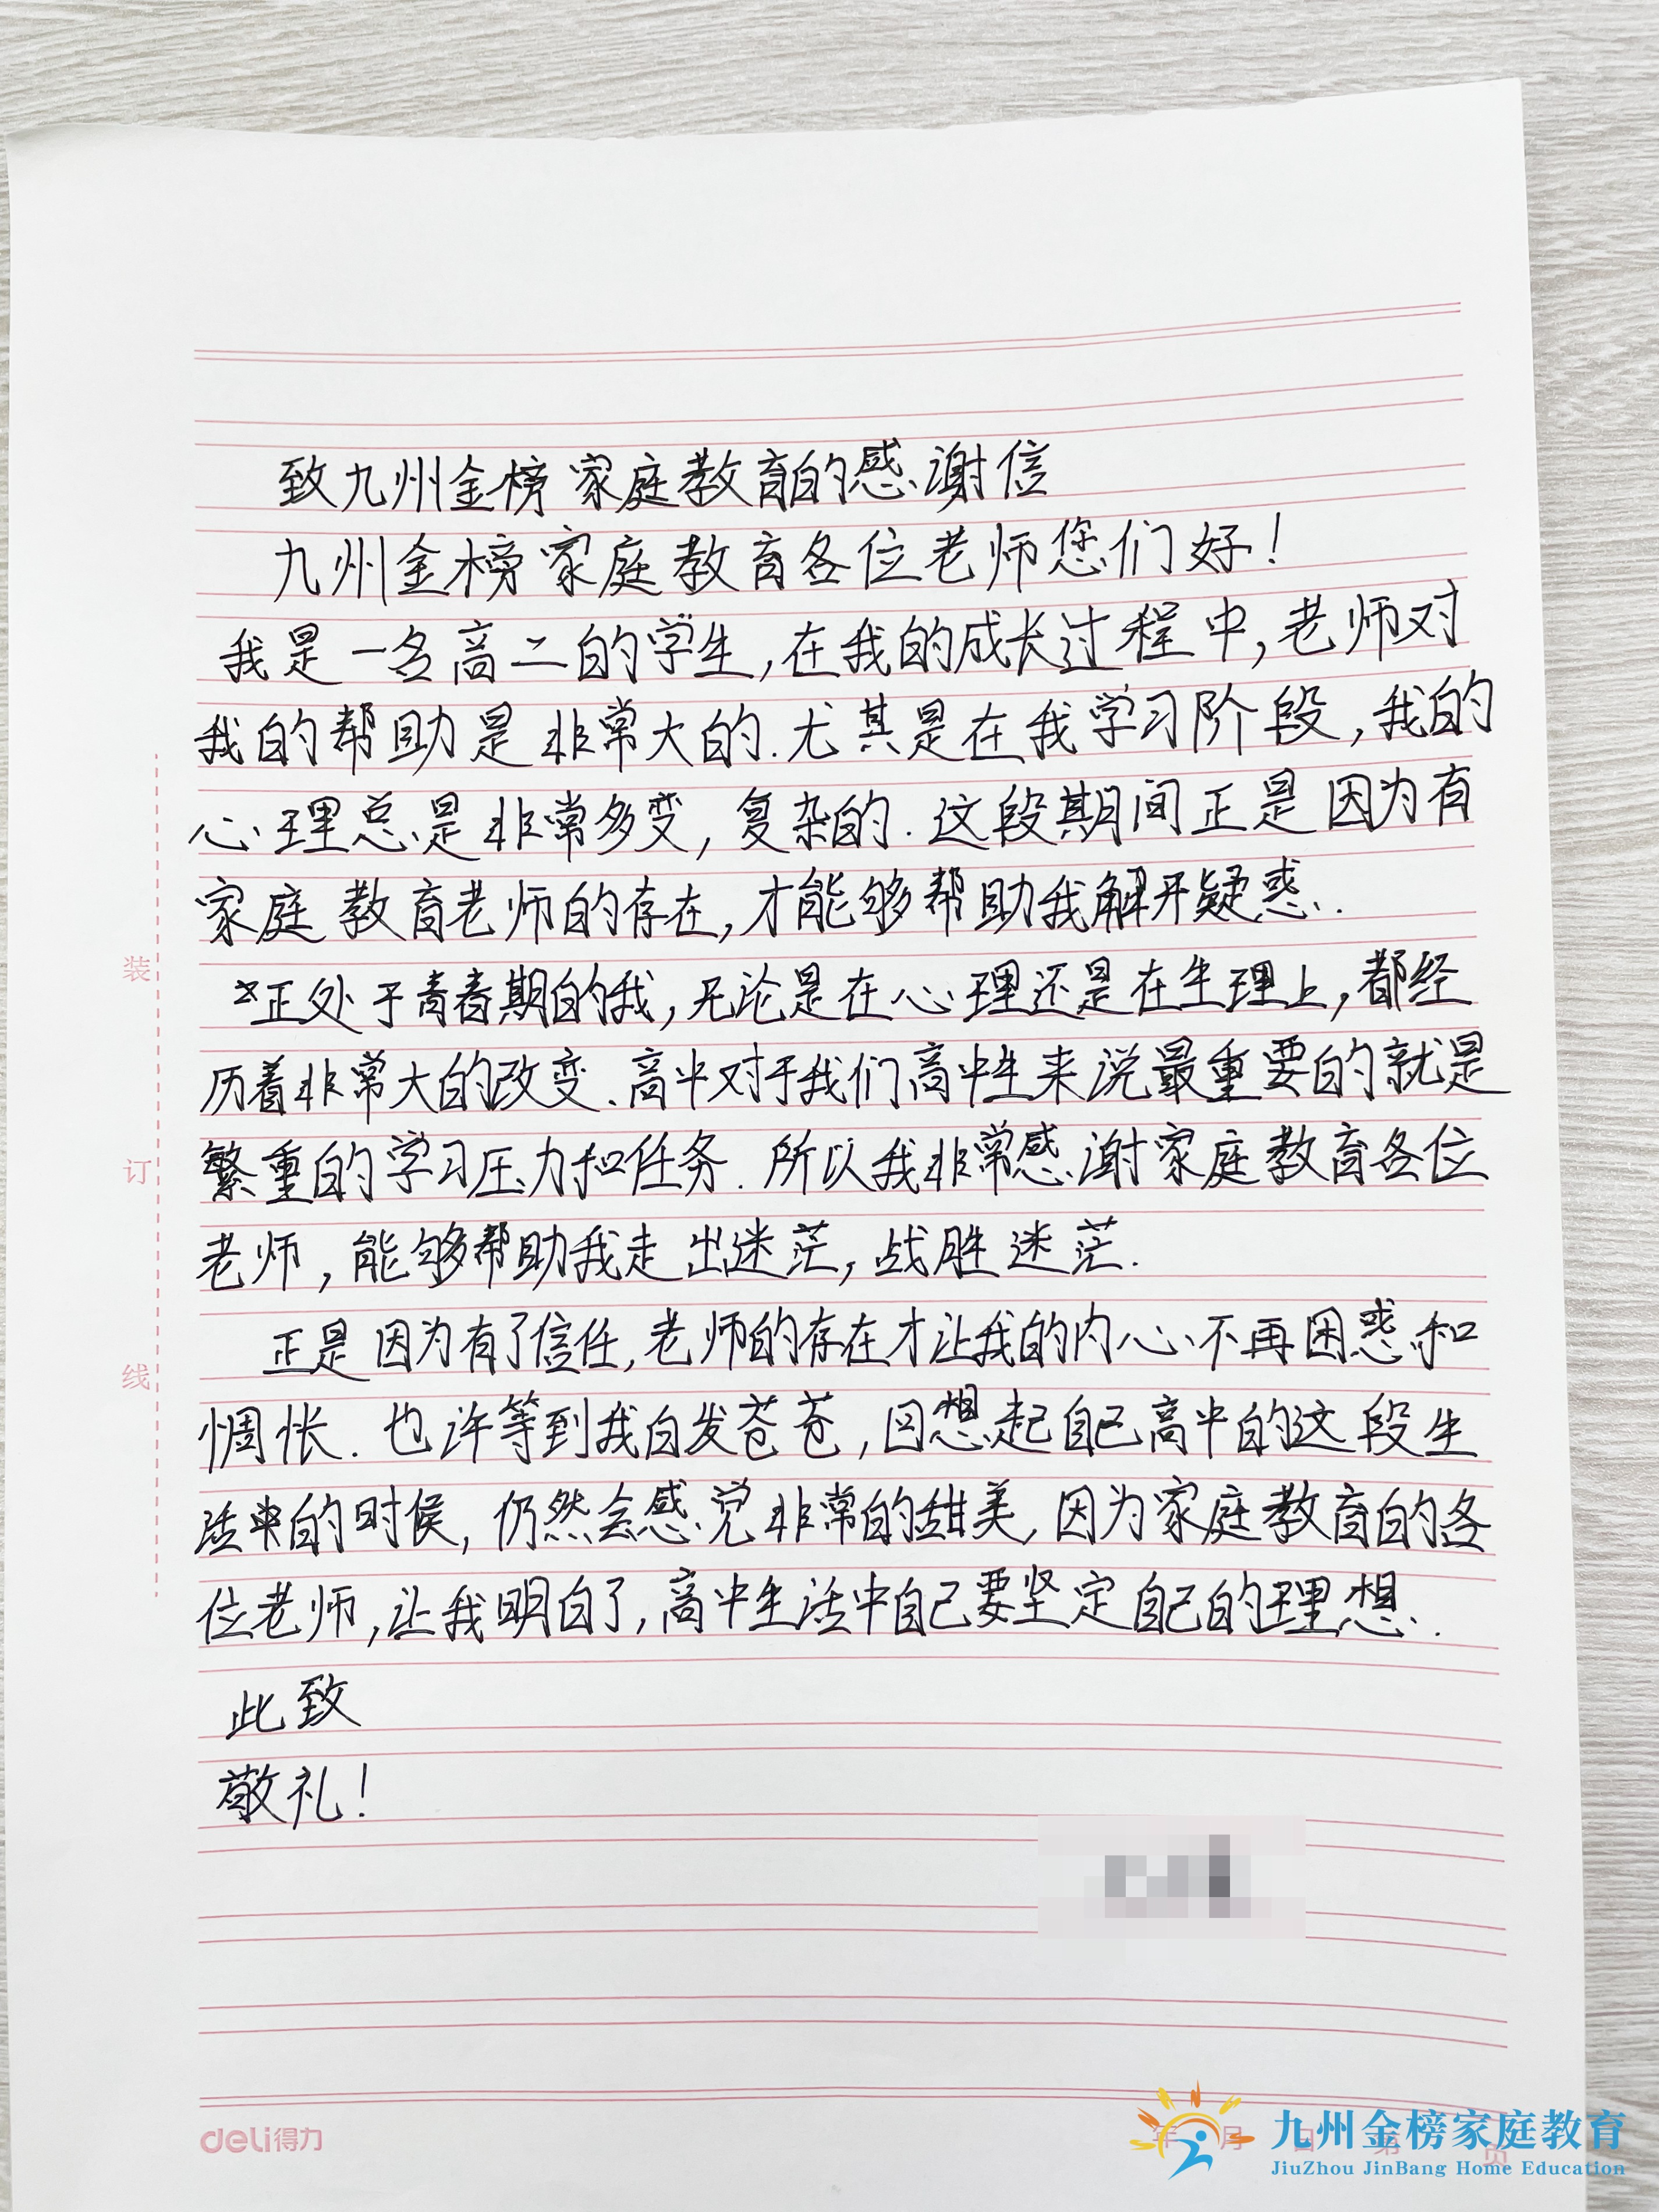 致九州金榜家庭教育的感谢信
九州金榜家庭教育各位老师您们好！
我是一名高二的学生,在我的成长过程中,老师对
我的帮助是非常大的.尤其是在我学习阶段,我的
心理总是非常多变,复杂的.这段期间正是因为有
家庭教育老师的存在,才能够帮助我解开疑惑.
正处于青春期的我,无论是在心理还是在生理上,都经
历着非常大的改变.高中对于我们高中生来说最重要的就是
繁重的学习压力和任务.所以我非常感谢家庭教育各位
老师,能够帮助我走出迷茫,战胜迷茫.
正是因为有了信任,老师的存在才让我的内心不再困惑和
惆怅.也许等到我白发苍苍,回想起自己高中的这段生
活中的时候,仍然会感觉非常的甜美,因为家庭教育的各
位老师,让我明白了,高中生活中自己要坚定自己的理想.
此致
敬礼！
装
订
线
deli得力
年 月 日 第 页
九州金榜家庭教育
JiuZhou JinBang Home Education